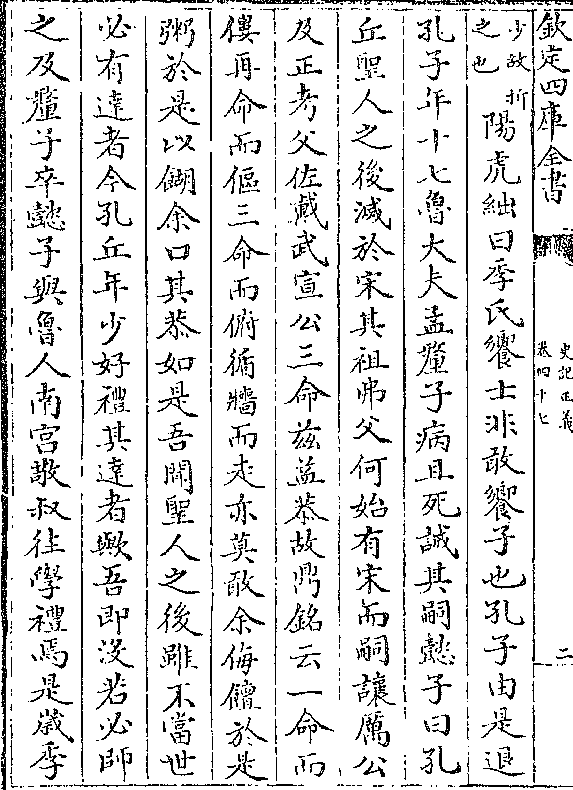 欽定四庫全書
史記正義
卷四十七
二
少故折
之也
陽虎絀曰季氏饗士非敢饗子也孔子由是退
孔子年十七魯大夫孟釐子病且死誡其嗣懿子曰孔
丘聖人之後滅於宋其祖弗父何始有宋而嗣讓厲公
及正考父佐戴武宣公三命兹益恭故鼎銘云一命而
僂再命而傴三命而俯循牆而走亦莫敢余侮饘於是
粥於是以餬余口其恭如是吾聞聖人之後雖不當世
必有達者今孔丘年少好禮其達者歟吾即没若必師
之及釐子卒懿子與魯人南宫敬叔往學禮焉是歲季